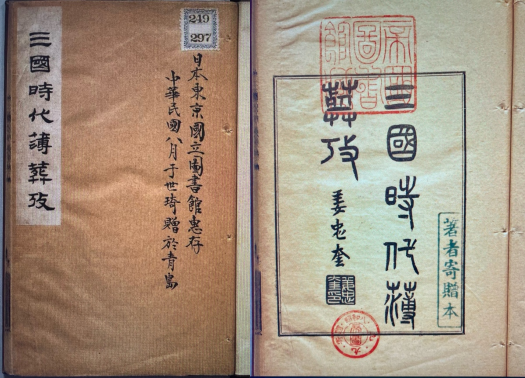 三國時代薄葬攷
249
297
日本東京國立圖書館惠存
中華民國八月于世琦贈於青島
三國時代薄
葬攷
姜忠奎
著者寄贈本